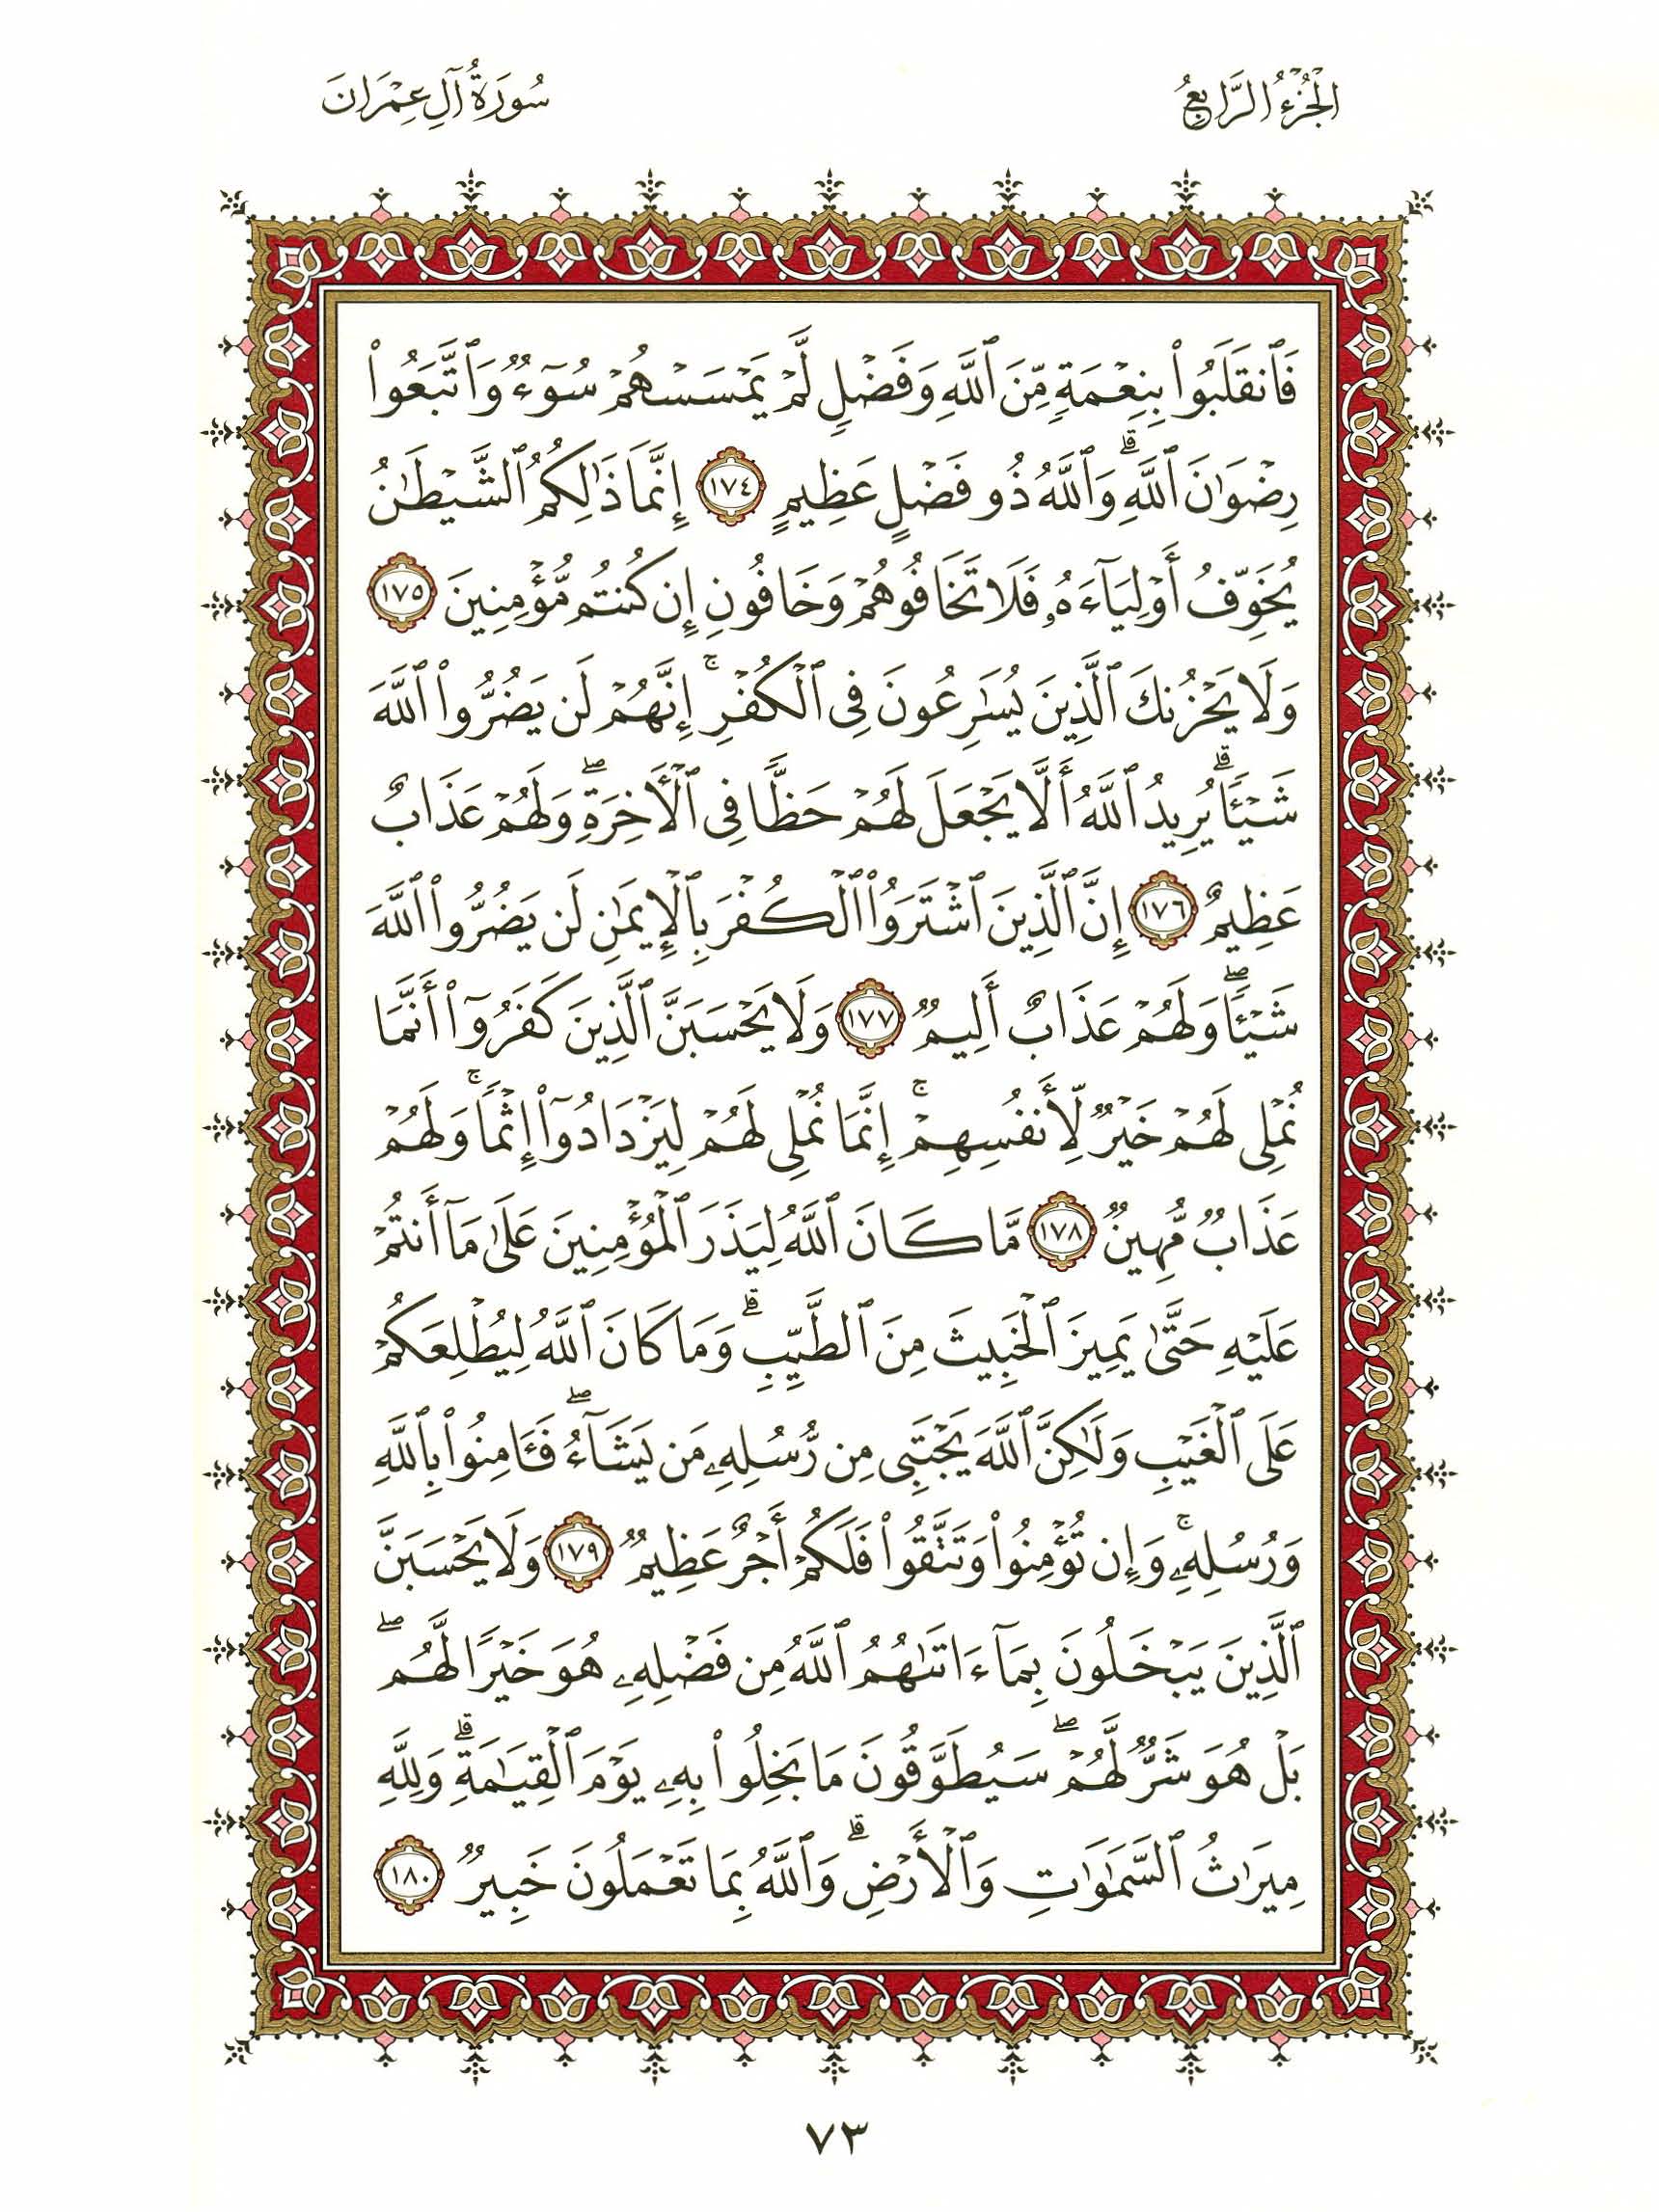 الجُزْءُ الرَّابِعُ
سُورَةُ آلِ عِمْرَانَ
فَٱنقَلَبُوا۟ بِنِعْمَةٍ مِّنَ ٱللَّهِ وَفَضْلٍ لَّمْ يَمْسَسْهُمْ سُوٓءٌ وَٱتَّبَعُوا۟
رِضْوَٰنَ ٱللَّهِ ۗ وَٱللَّهُ ذُو فَضْلٍ عَظِيمٍ ١٧٤ إِنَّمَا ذَٰلِكُمُ ٱلشَّيْطَٰنُ
يُخَوِّفُ أَوْلِيَآءَهُۥ فَلَا تَخَافُوهُمْ وَخَافُونِ إِن كُنتُم مُّؤْمِنِينَ ١٧٥
وَلَا يَحْزُنكَ ٱلَّذِينَ يُسَٰرِعُونَ فِى ٱلْكُفْرِ ۚ إِنَّهُمْ لَن يَضُرُّوا۟ ٱللَّهَ
شَيْـًٔا ۗ يُرِيدُ ٱللَّهُ أَلَّا يَجْعَلَ لَهُمْ حَظًّا فِى ٱلْـَٔاخِرَةِ ۖ وَلَهُمْ عَذَابٌ
عَظِيمٌ ١٧٦ إِنَّ ٱلَّذِينَ ٱشْتَرَوُا۟ ٱلْكُفْرَ بِٱلْإِيمَٰنِ لَن يَضُرُّوا۟ ٱللَّهَ
شَيْـًٔا ۖ وَلَهُمْ عَذَابٌ أَلِيمٌ ١٧٧ وَلَا يَحْسَبَنَّ ٱلَّذِينَ كَفَرُوٓا۟ أَنَّمَا
نُمْلِى لَهُمْ خَيْرٌ لِّأَنفُسِهِمْ ۚ إِنَّمَا نُمْلِى لَهُمْ لِيَزْدَادُوٓا۟ إِثْمًا ۚ وَلَهُمْ
عَذَابٌ مُّهِينٌ ١٧٨ مَّا كَانَ ٱللَّهُ لِيَذَرَ ٱلْمُؤْمِنِينَ عَلَىٰ مَآ أَنتُمْ
عَلَيْهِ حَتَّىٰ يَمِيزَ ٱلْخَبِيثَ مِنَ ٱلطَّيِّبِ ۗ وَمَا كَانَ ٱللَّهُ لِيُطْلِعَكُمْ
عَلَى ٱلْغَيْبِ وَلَٰكِنَّ ٱللَّهَ يَجْتَبِى مِن رُّسُلِهِۦ مَن يَشَآءُ ۖ فَـَٔامِنُوا۟ بِٱللَّهِ
وَرُسُلِهِۦ ۚ وَإِن تُؤْمِنُوا۟ وَتَتَّقُوا۟ فَلَكُمْ أَجْرٌ عَظِيمٌ ١٧٩ وَلَا يَحْسَبَنَّ
ٱلَّذِينَ يَبْخَلُونَ بِمَآ ءَاتَىٰهُمُ ٱللَّهُ مِن فَضْلِهِۦ هُوَ خَيْرًا لَّهُم ۖ
بَلْ هُوَ شَرٌّ لَّهُمْ ۖ سَيُطَوَّقُونَ مَا بَخِلُوا۟ بِهِۦ يَوْمَ ٱلْقِيَٰمَةِ ۗ وَلِلَّهِ
مِيرَٰثُ ٱلسَّمَٰوَٰتِ وَٱلْأَرْضِ ۗ وَٱللَّهُ بِمَا تَعْمَلُونَ خَبِيرٌ ١٨٠
٧٣